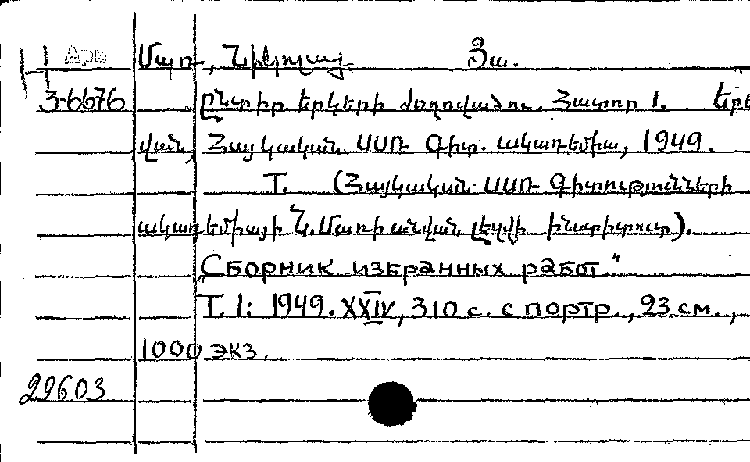 Арм Մառ, Նիկողայ. Յա.
3-6676 Ընտիր երկերի ժողովածու. Հատոր 1. Երե
վան, Հայկական ՍՍՌ Գիտ. ակադեմիա, 1949.
T. (Հայկական ՍՍՌ Գիտությունների
ակադեմիայի Ն. Մառի անվան լեզվի ինստիտուտ).
„Сборник избранных работ“
Т. 1: 1949. XXIV, 310 с. с портр., 23 см.,
1000 экз.
29603